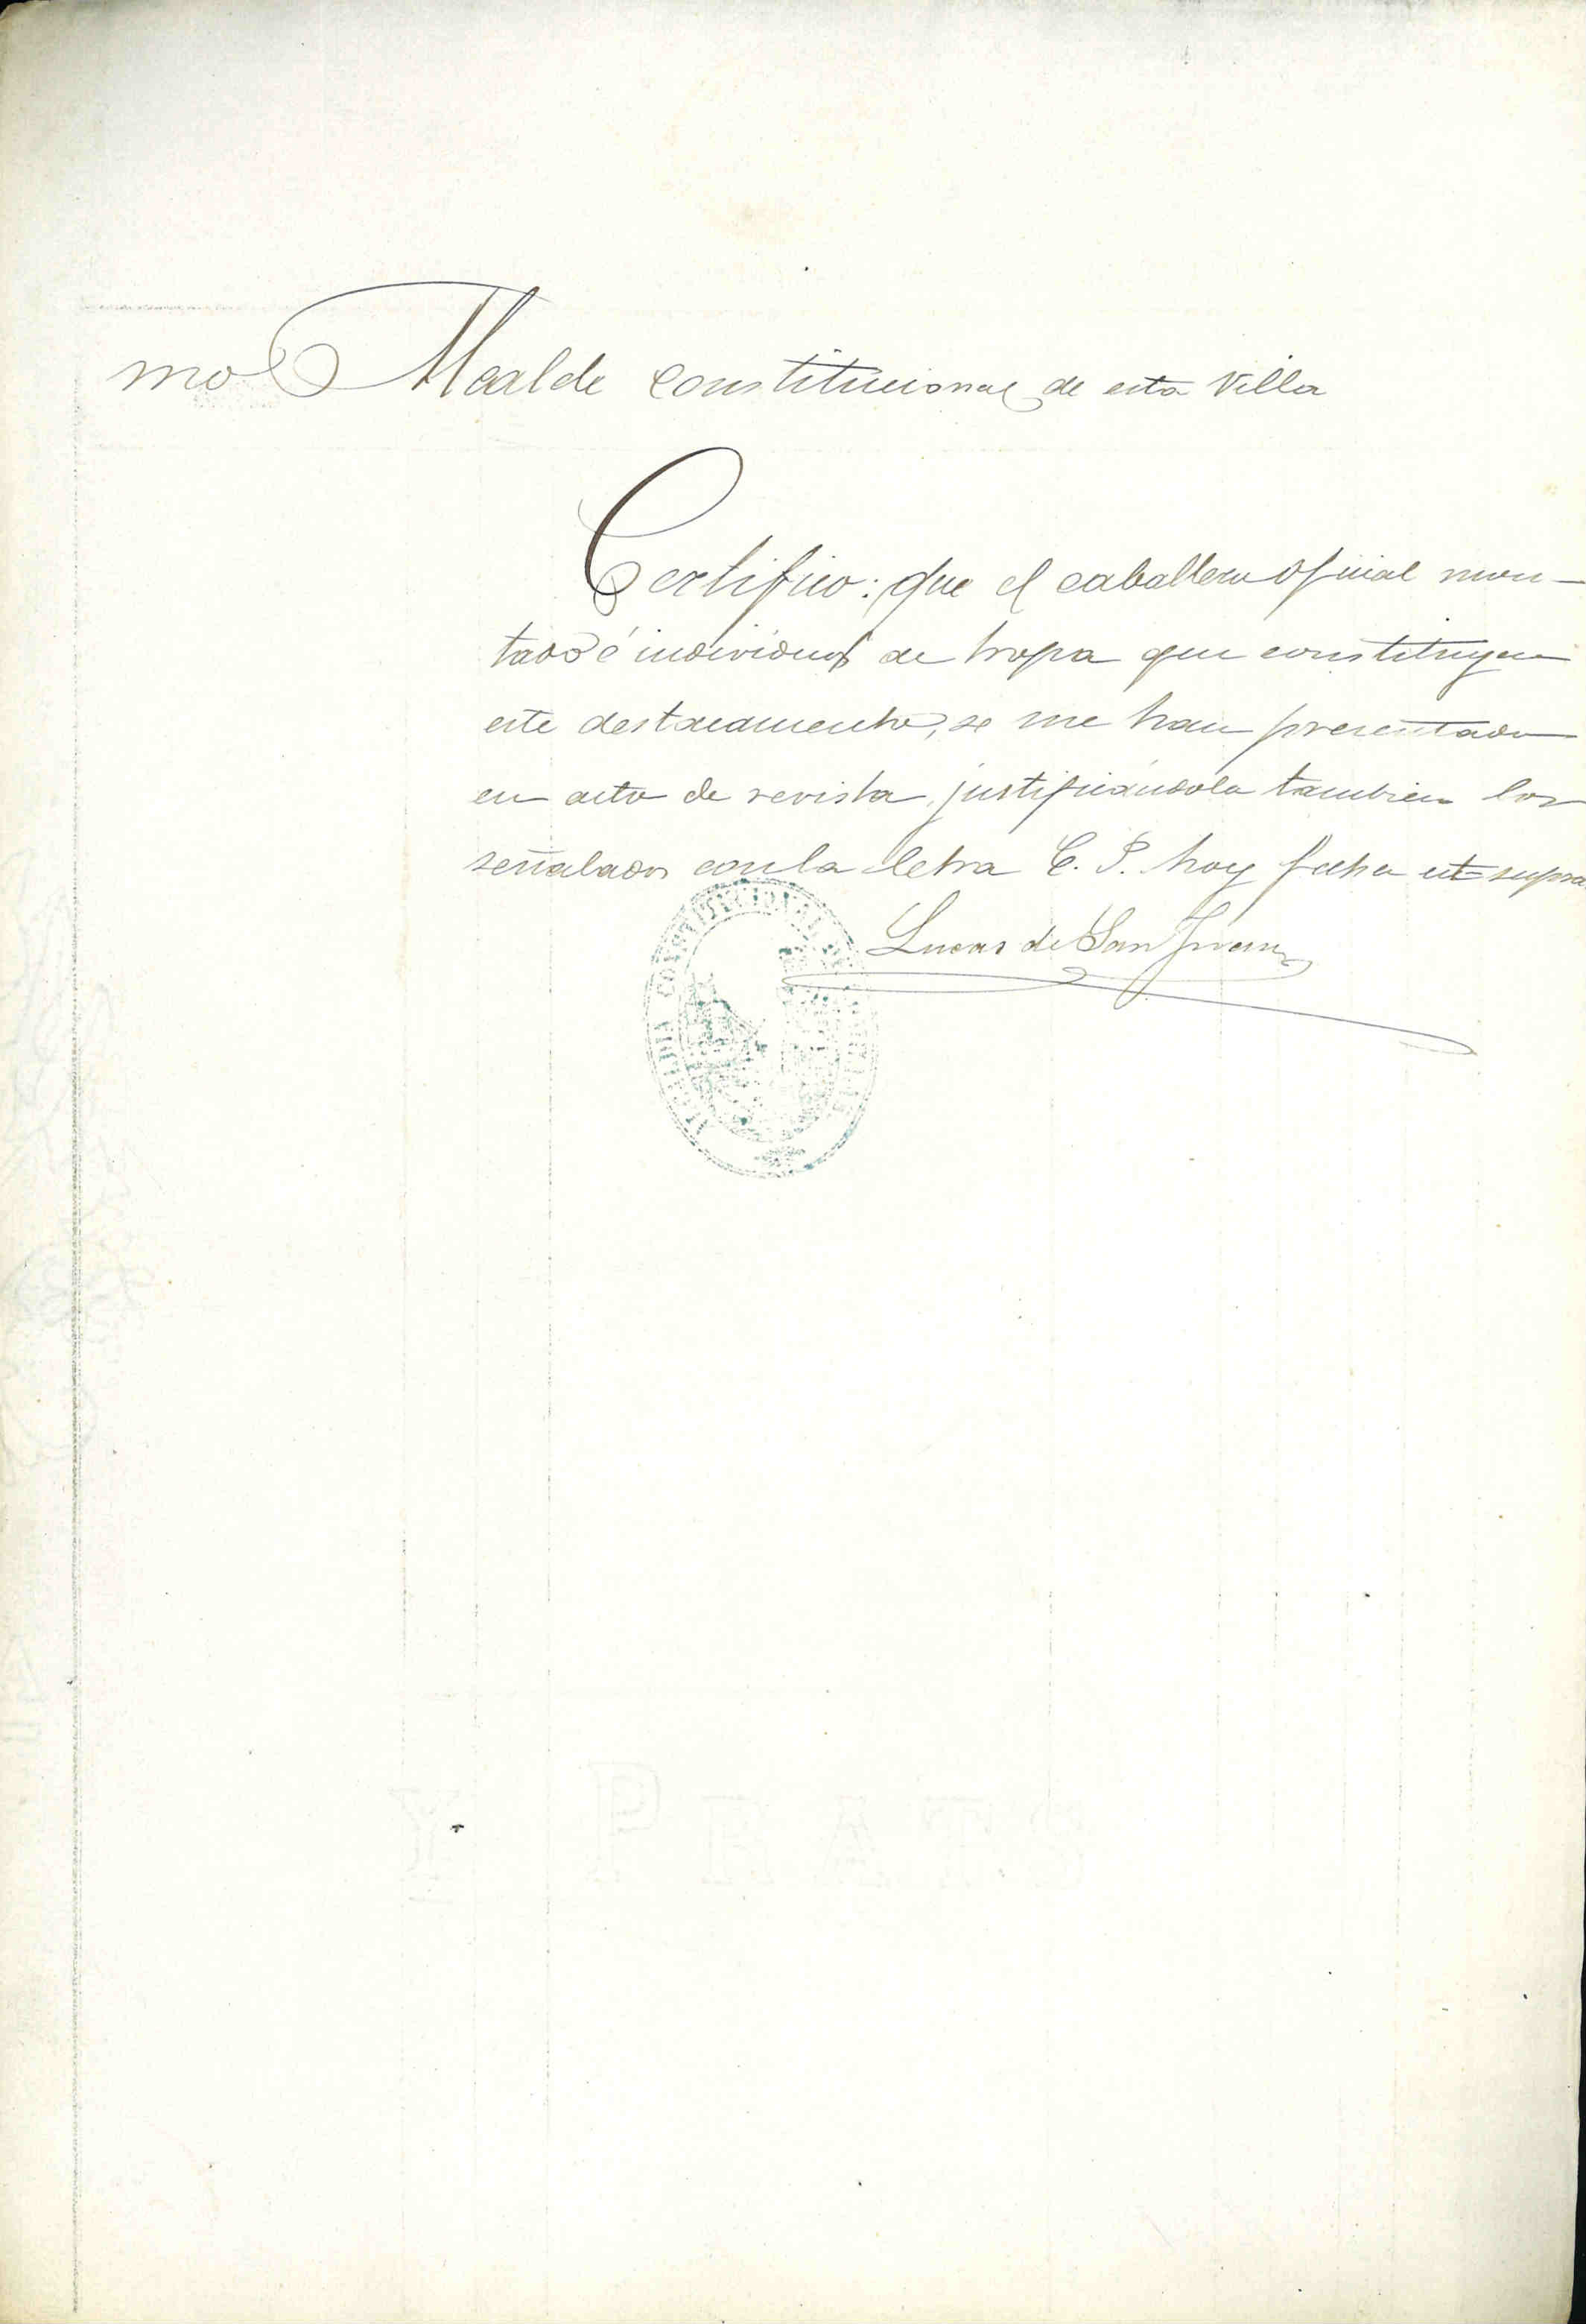 mo Alcalde constitucional de esta Villa
Certifico: que el caballero oficial mon-
tado é individuos de tropa que constituyen
este destacamento, se me han presentado
en acto de revista, justificándola tambien los
señalados con la letra C. P. hoy fecha ut supra.
Lucas de San Juan
CONSTITUCIONAL